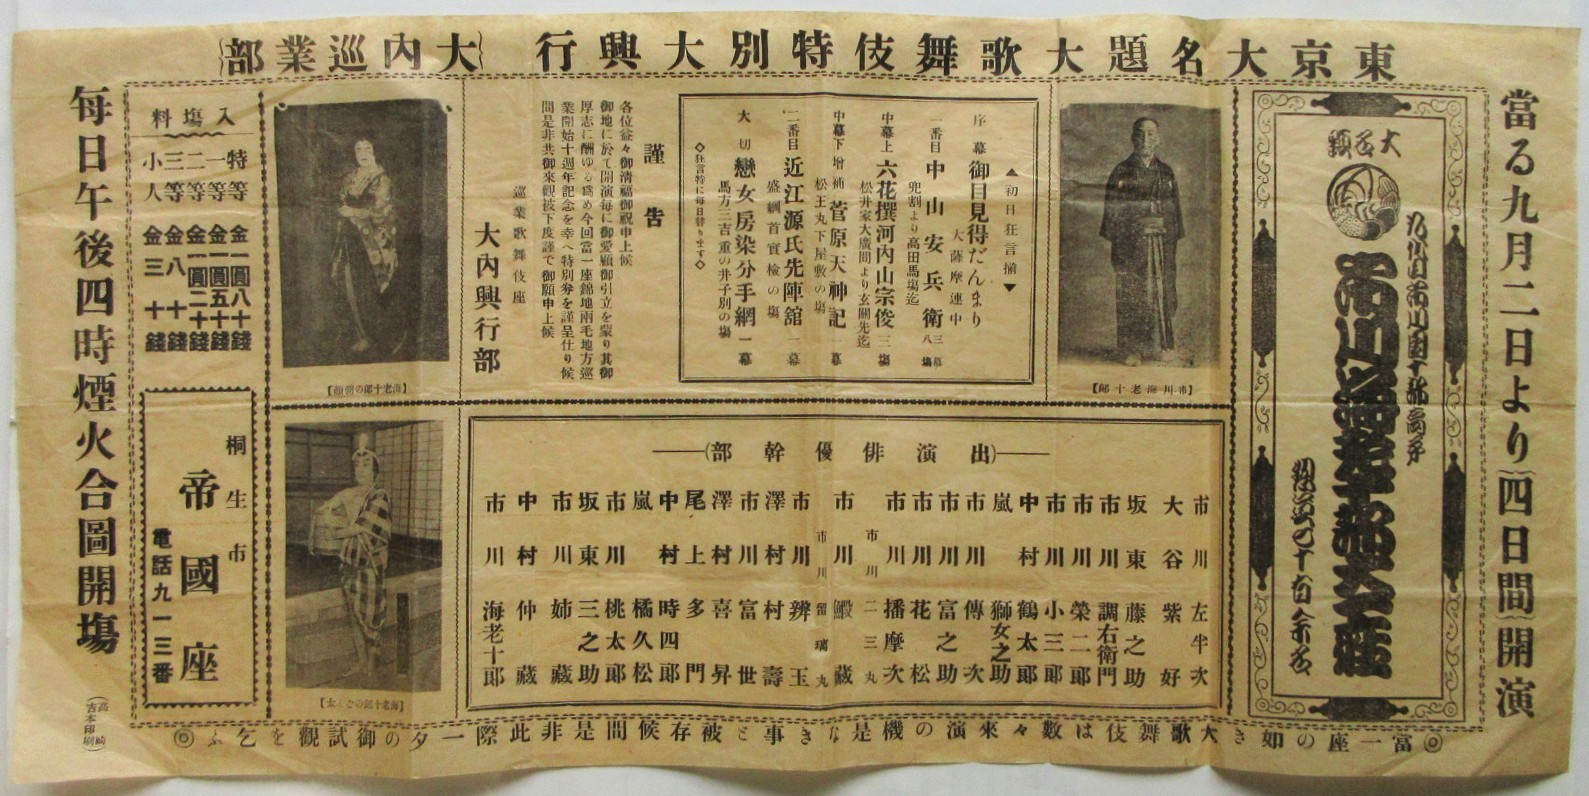 東京大名題大歌舞伎特別大興行（大内巡業部）
當る九月二日より（四日間）開演
大名題
市川海老十郎大一座
【市川海老十郎】
▲初日狂言揃▼
序幕 御目見得だんまり
大薩摩連中
一番目 中山安兵衛 三幕八場
兜割より高田馬塲迄
中幕上 六花撰河内山宗俊 三塲
松井家大廣間より玄關先迄
中幕下 増補 菅原天神記 一幕
松王丸下屋敷の塲
二番目 近江源氏先陣舘 一幕
盛綱首實檢の塲
大切 戀女房染分手綱 一幕
馬方三吉重の井子別の塲
◇狂言特に毎日替ります◇
謹告
各位益々御清福御祝申上候
御地に於て開演毎に御愛顧御引立を蒙り其御
厚志に酬ゆる爲め今回當一座錦地兩毛地方巡
業開始十週年記念を幸へ特別劵を謹呈仕り候
間是非共御來觀被下度謹で御願申上候
巡業歌舞伎座
大内興行部
【海老十郎の朝顔】
（出演俳優幹部）
市川左半次
大谷紫好
坂東藤之助
市川調右衛門
市川榮二郎
市川小三郎
中村鶴太郎
嵐獅女之助
市川傳次
市川富之助
市川花松
市川播摩次
市川二三丸
市川鰕藏
市川留璃丸
市川辨玉
澤村村壽
市川富世
澤村喜昇
尾上多門
中村時四郎
嵐橘久松
市川桃太郎
坂東三之助
市川姉藏
中村仲藏
市川海老十郎
入塲料
特等 金一圓八十錢
一等 金一圓五十錢
二等 金一圓二十錢
三等 金八十錢
小人 金三十錢
桐生市
帝國座
電話九一三番
毎日午後四時煙火合圖開塲
（高崎吉本印刷）
◎當一座の如き大歌舞伎は數々來演の機是なき事と被存候間是非此際一夕の御試觀を乞ふ◎